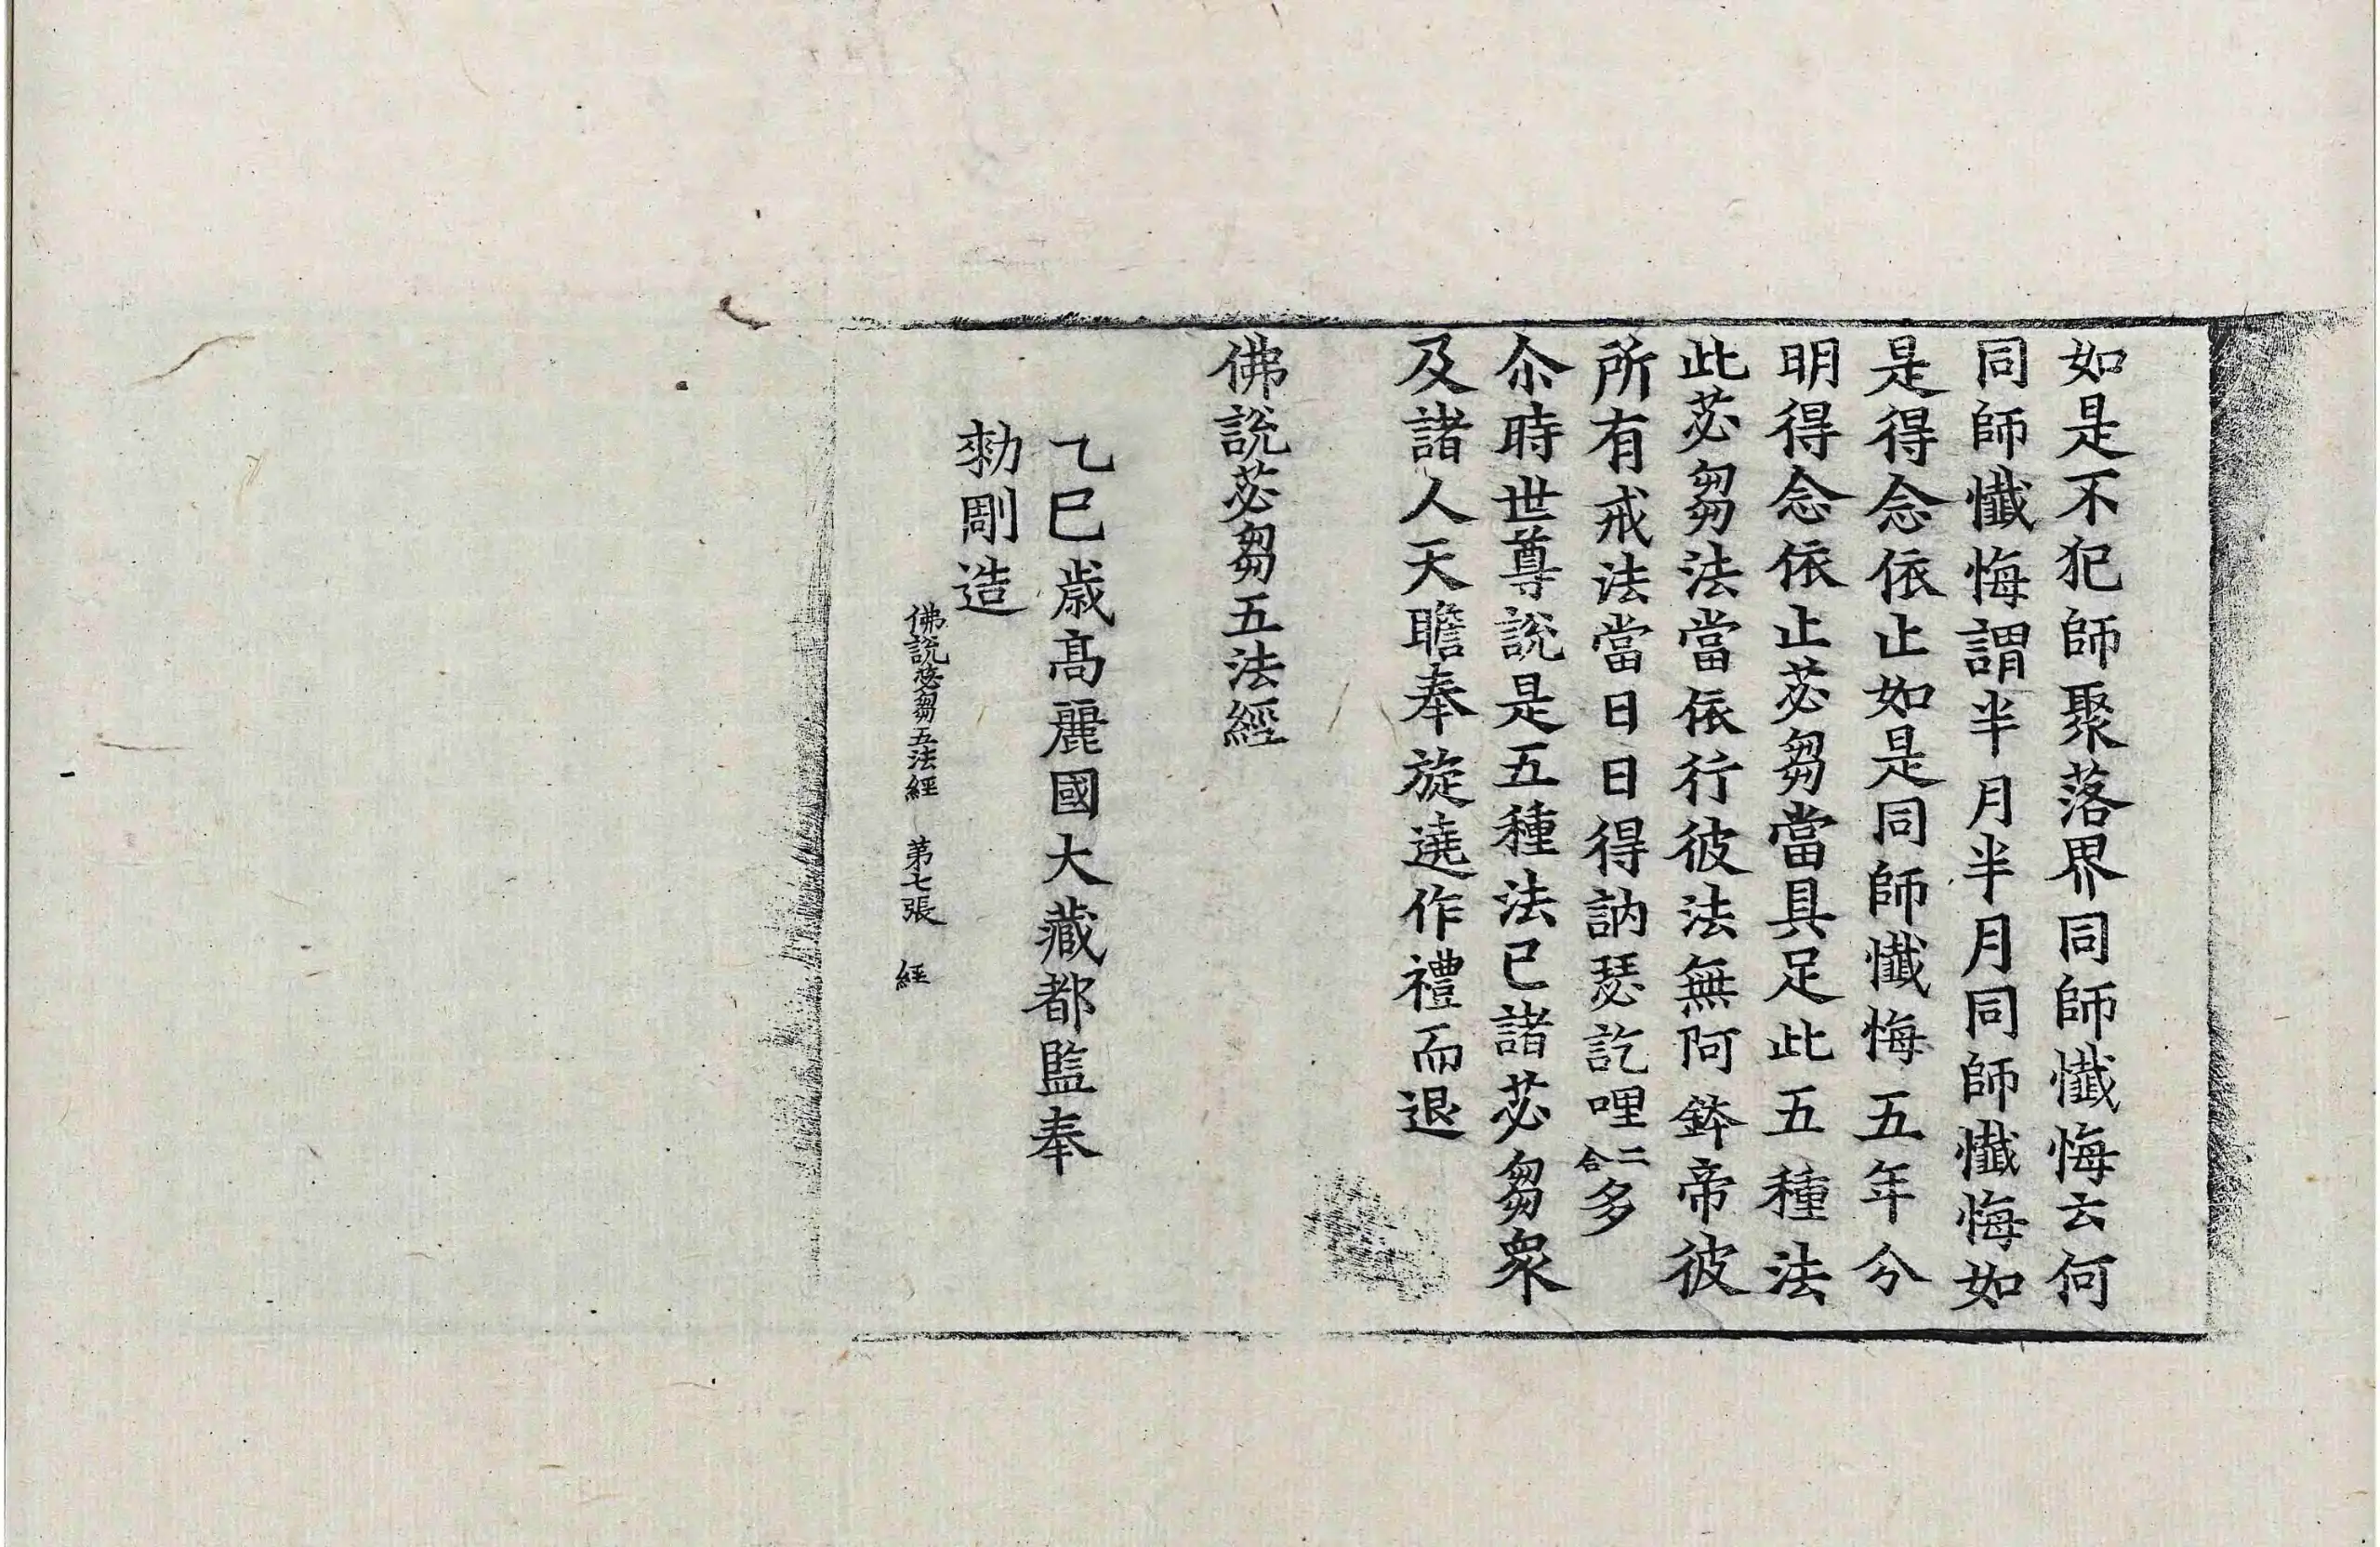 如是不犯師聚落界同師懺悔云何
同師懺悔謂半月半月同師懺悔如
是得念依止如是同師懺悔五年分
明得念依止苾芻當具足此五種法
此苾芻法當依行彼法無阿鉢帝彼
所有戒法當日日得訥瑟訖哩二合多
尒時世尊說是五種法已諸苾芻衆
及諸人天瞻奉旋遶作禮而退
佛說苾芻五法經
乙巳歲高麗國大藏都監奉
勑剛造
佛說苾芻五法經 第七張 經